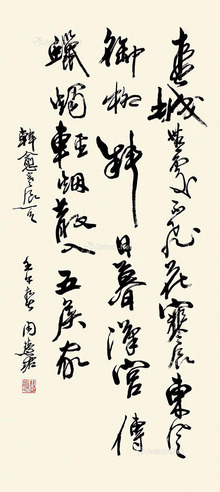 春城無處不飛花寒食東風
御柳斜日暮漢宮傳
蠟燭輕烟散入五侯家
韓愈寒食
壬午春周慧珺